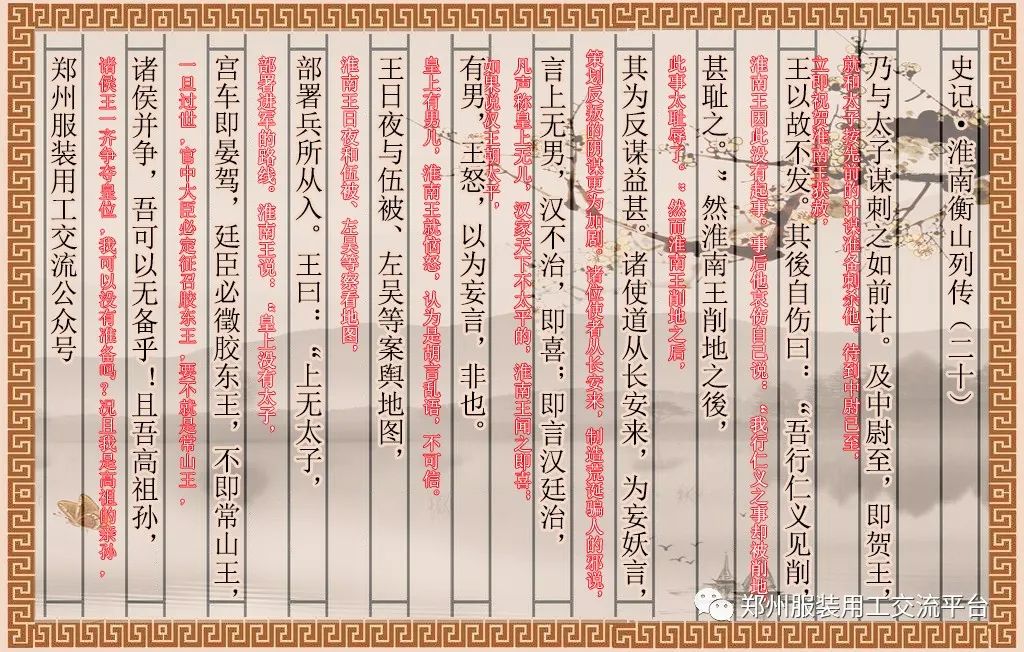 史记·淮南衡山列传（二十）
乃与太子谋刺之如前计。及中尉至，即贺王，
就和太子按先前的计谋准备刺杀他。待到中尉已至，
立即祝贺淮南王获赦，
王以故不发。其後自伤曰：“吾行仁义见削，
淮南王因此没有起事。事后他哀伤自己说：“我行仁义之事却被削地
甚耻之。”然淮南王削地之後，
此事太耻辱了。”然而淮南王削地之后，
其为反谋益甚。诸使道从长安来，为妄妖言，
策划反叛的阴谋更为加剧。诸位使者从长安来，制造荒诞骗人的邪说，
言上无男，汉不治，即喜；即言汉廷治，
凡声称皇上无儿，汉家天下不太平的，淮南王闻之即喜；
有男，王怒，以为妄言，非也。
皇上有男儿，淮南王就恼怒，认为是胡言乱语，不可信。
王日夜与伍被、左吴等案舆地图，
淮南王日夜和伍被、左吴等察看地图，
部署兵所从入。王曰：“上无太子，
部署进军的路线。淮南王说：“皇上没有太子，
宫车即晏驾，廷臣必徵胶东王，不即常山王，
一旦过世，宫中大臣必定征召胶东王，要不就是常山王，
诸侯并争，吾可以无备乎！且吾高祖孙，
诸侯王一齐争夺皇位，我可以没有准备吗？况且我是高祖的亲孙，
郑州服装用工交流公众号
郑州服装用工交流平台